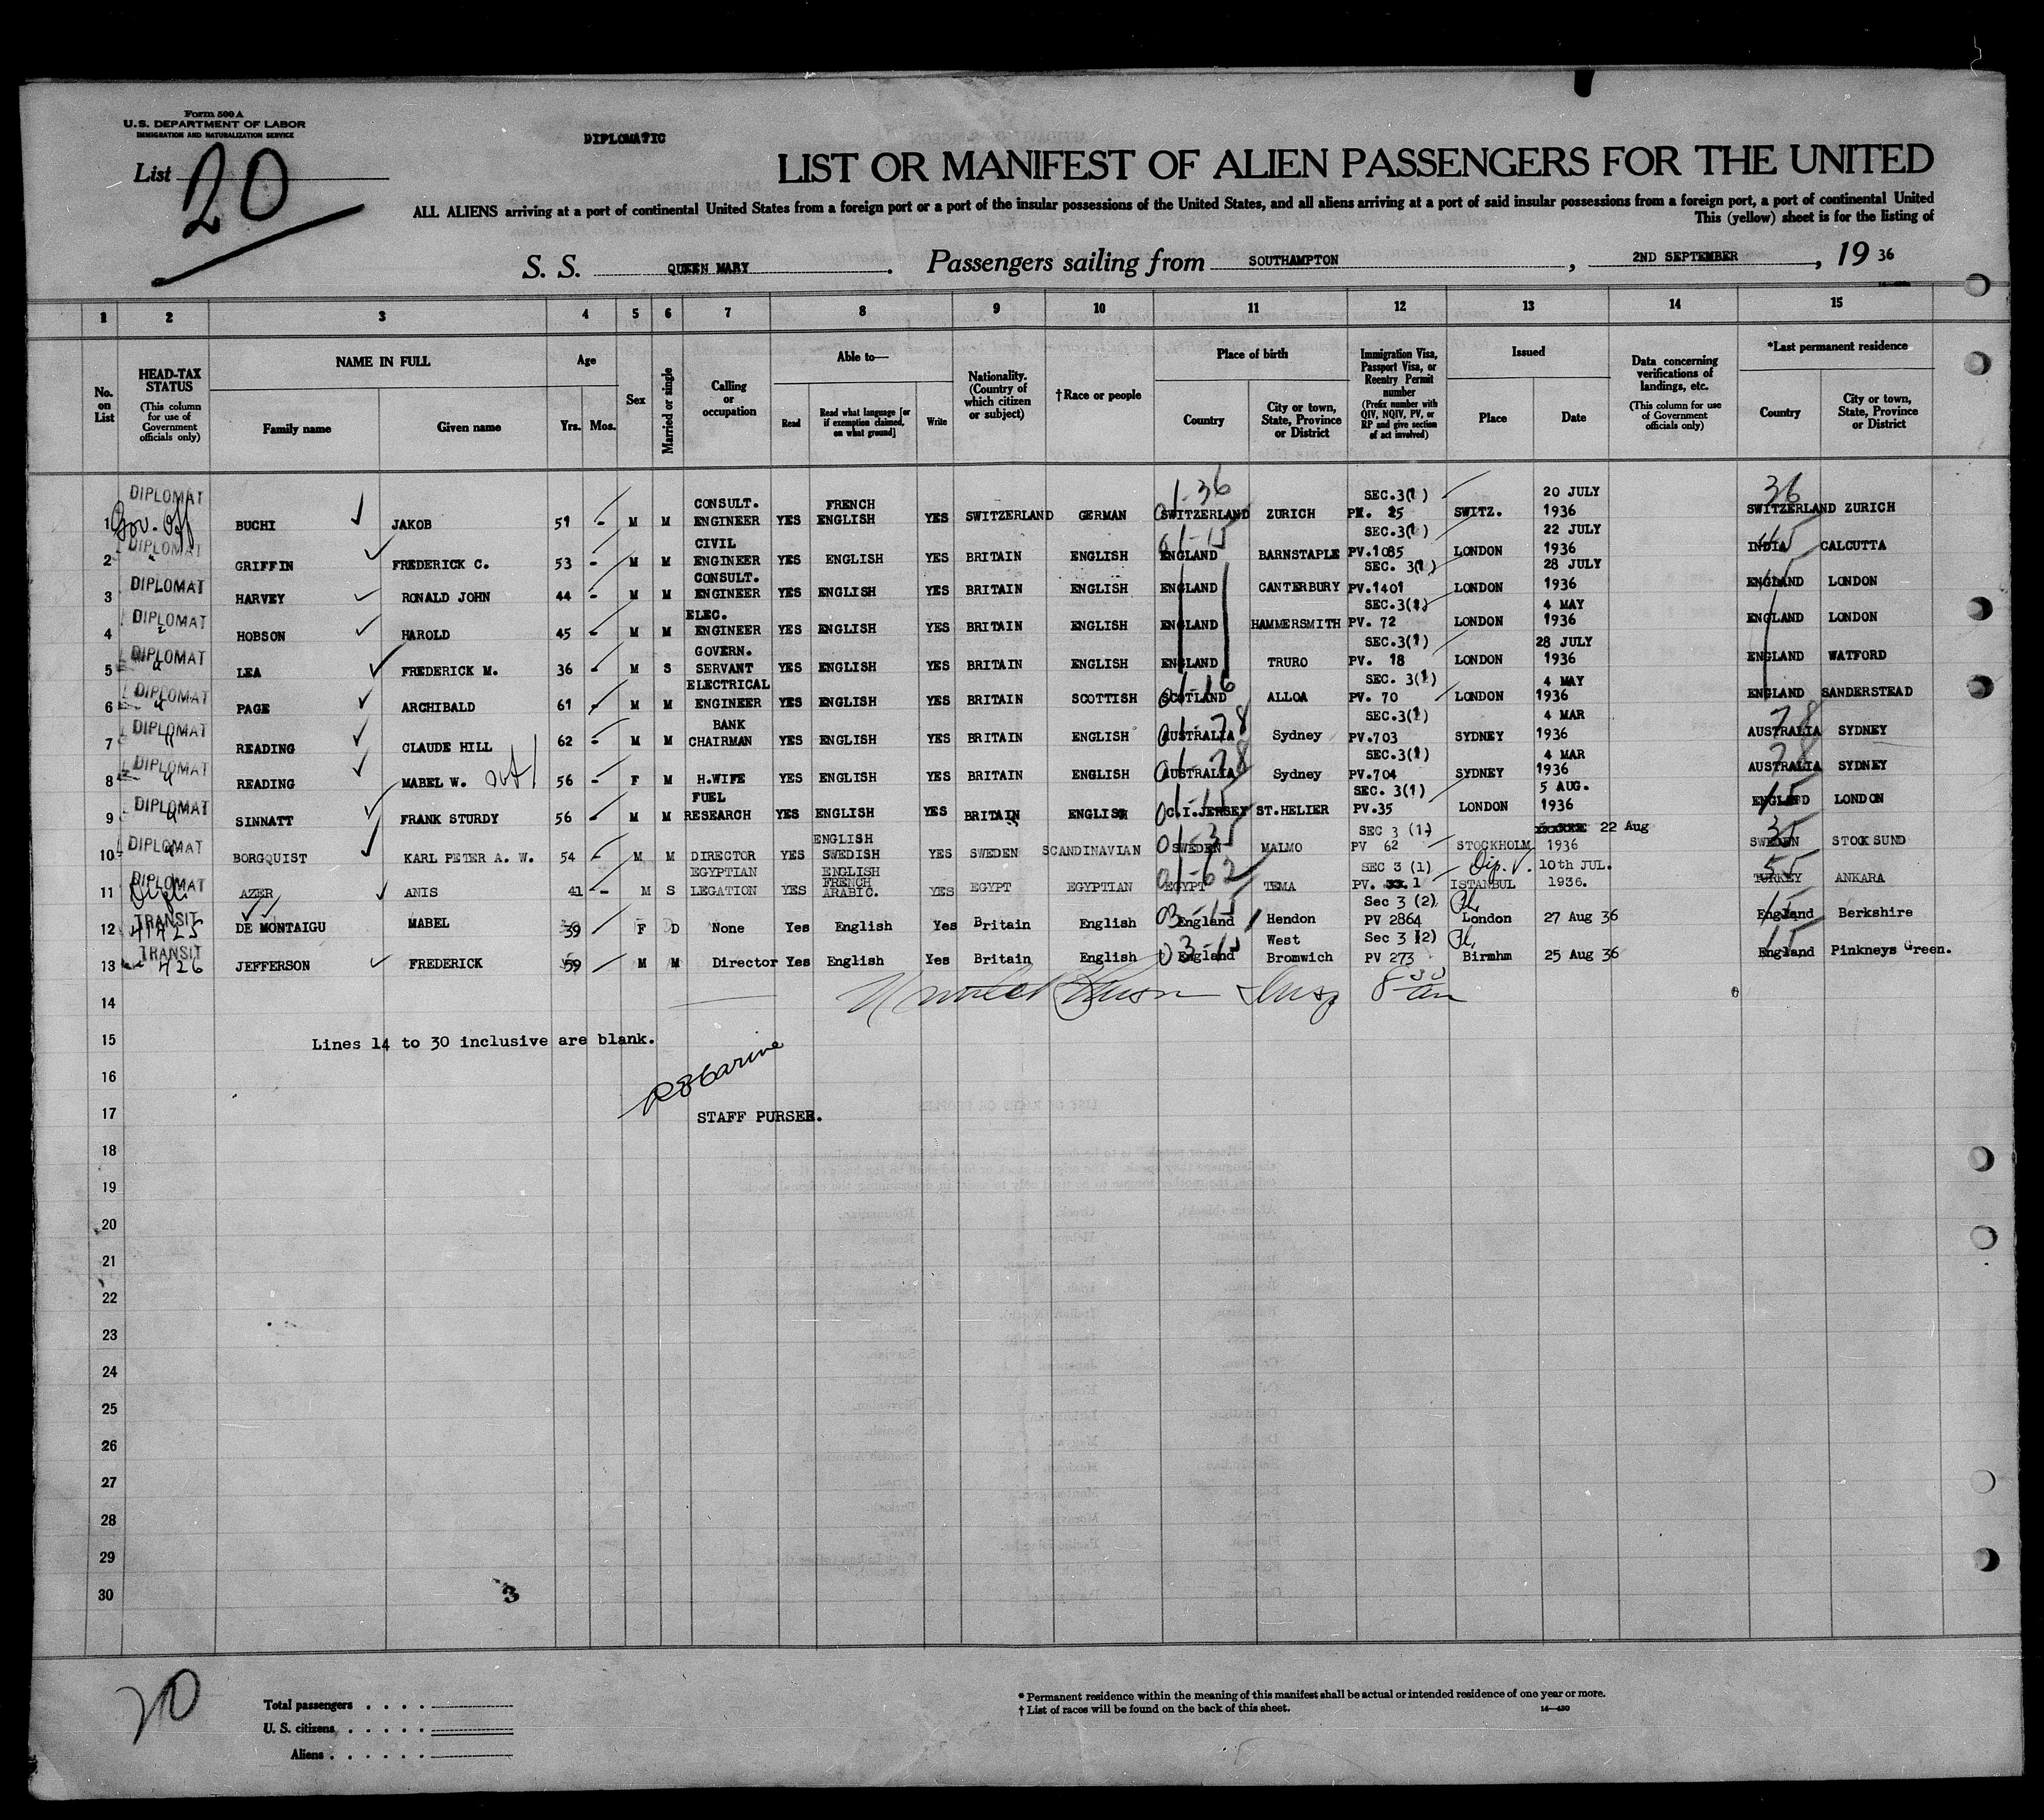 Form 500 A
U. S. DEPARTMENT OF LABOR
IMMIGRATION AND NATURALIZATION SERVICE
List 20
DIPLOMATIC
LIST OR MANIFEST OF ALIEN PASSENGERS FOR THE UNITED
ALL ALIENS arriving at a port of continental United States from a foreign port or a port of the insular possessions of the United States, and all aliens arriving at a port of said insular possessions from a foreign port, a port of continental United
This (yellow) sheet is for the listing of
S. S. QUEEN MARY. Passengers sailing from SOUTHAMPTON, 2ND SEPTEMBER, 19 36
1 2 3 4 5 6 7 8 9 10 11 12 13 14 15
No. on List
HEAD-TAX STATUS (This column for use of Government officials only)
NAME IN FULL Family name Given name
Age Yrs. Mos.
Sex
Married or single
Calling or occupation
Able to— Read Read what language [or if exemption claimed, on what ground] Write
Nationality. (Country of which citizen or subject)
†Race or people
Place of birth Country City or town, State, Province or District
Immigration Visa, Passport Visa, or Reentry Permit number (Prefix number with QIV, NQIV, PV, or RP and give section of act involved)
Issued Place Date
Data concerning verifications of landings, etc. (This column for use of Government officials only)
*Last permanent residence Country City or town, State, Province or District
DIPLOMAT CONSULT. FRENCH 01-36 SEC.3(1) 20 JULY 36
1 Gov. Off BUCHI JAKOB 51 - M M ENGINEER YES ENGLISH YES SWITZERLAND GERMAN SWITZERLAND ZURICH 25 SWITZ. 1936 SWITZERLAND ZURICH
DIPLOMAT CIVIL 01-15 SEC.3(1) 22 JULY 45
2 " GRIFFIN FREDERICK C. 53 - M M ENGINEER YES ENGLISH YES BRITAIN ENGLISH ENGLAND BARNSTAPLE PV.1085 LONDON 1936 INDIA CALCUTTA
DIPLOMAT CONSULT. SEC. 3(1) 28 JULY
3 HARVEY RONALD JOHN 44 - M M ENGINEER YES ENGLISH YES BRITAIN ENGLISH ENGLAND CANTERBURY PV.1401 LONDON 1936 ENGLAND LONDON
DIPLOMAT ELEC. SEC.3(1) 4 MAY
4 HOBSON HAROLD 45 - M M ENGINEER YES ENGLISH YES BRITAIN ENGLISH ENGLAND HAMMERSMITH PV. 72 LONDON 1936 ENGLAND LONDON
DIPLOMAT GOVERN. SEC.3(1) 28 JULY
5 LEA FREDERICK M. 36 - M S SERVANT YES ENGLISH YES BRITAIN ENGLISH ENGLAND TRURO PV. 18 LONDON 1936 ENGLAND WATFORD
DIPLOMAT ELECTRICAL 01-16 SEC. 3(1) 4 MAY
6 PAGE ARCHIBALD 61 - M M ENGINEER YES ENGLISH YES BRITAIN SCOTTISH SCOTLAND ALLOA PV. 70 LONDON 1936 ENGLAND SANDERSTEAD
DIPLOMAT BANK 01-78 SEC.3(1) 4 MAR 78
7 READING CLAUDE HILL 62 - M M CHAIRMAN YES ENGLISH YES BRITAIN ENGLISH AUSTRALIA Sydney PV.703 SYDNEY 1936 AUSTRALIA SYDNEY
DIPLOMAT 01-78 SEC.3(1) 4 MAR 78
8 READING MABEL W. 56 - F M H.WIFE YES ENGLISH YES BRITAIN ENGLISH AUSTRALIA Sydney PV.704 SYDNEY 1936 AUSTRALIA SYDNEY
DIPLOMAT FUEL 01-15 SEC. 3(1) 5 AUG. 15
9 SINNATT FRANK STURDY 56 - M M RESEARCH YES ENGLISH YES BRITAIN ENGLISH C.I.JERSEY ST.HELIER PV.35 LONDON 1936 ENGLAND LONDON
DIPLOMAT ENGLISH 01-35 SEC 3 (1) 22 Aug 35
10 BORGQUIST KARL PETER A. W. 54 - M M DIRECTOR YES SWEDISH YES SWEDEN SCANDINAVIAN SWEDEN MALMO PV 62 STOCKHOLM 1936 SWEDEN STOCKSUND
DIPLOMAT EGYPTIAN ENGLISH FRENCH 01-62 SEC 3 (1) Dip. V. 10th JUL. 55
11 Dipl. AZER ANIS 41 - M S LEGATION YES ARABIC. YES EGYPT EGYPTIAN EGYPT TEMA PV. 1 ISTANBUL 1936. TURKEY ANKARA
TRANSIT 03-15 Sec 3 (2) 15
12 41425 DE MONTAIGU MABEL 39 F D None Yes English Yes Britain English England Hendon PV 2864 London 27 Aug 36 England Berkshire
TRANSIT 03-15 West Sec 3 (2) 15
13 426 JEFFERSON FREDERICK 59 M M Director Yes English Yes Britain English England Bromwich PV 273 Birmhm 25 Aug 36 England Pinkneys Green.
14
15 Lines 14 to 30 inclusive are blank.
16
17 STAFF PURSER.
18
19
20
21
22
23
24
25
26
27
28
29
30 3
20
Total passengers . . . .
U. S. citizens . . . . .
Aliens . . . . . .
* Permanent residence within the meaning of this manifest shall be actual or intended residence of one year or more.
† List of races will be found on the back of this sheet. 14—430